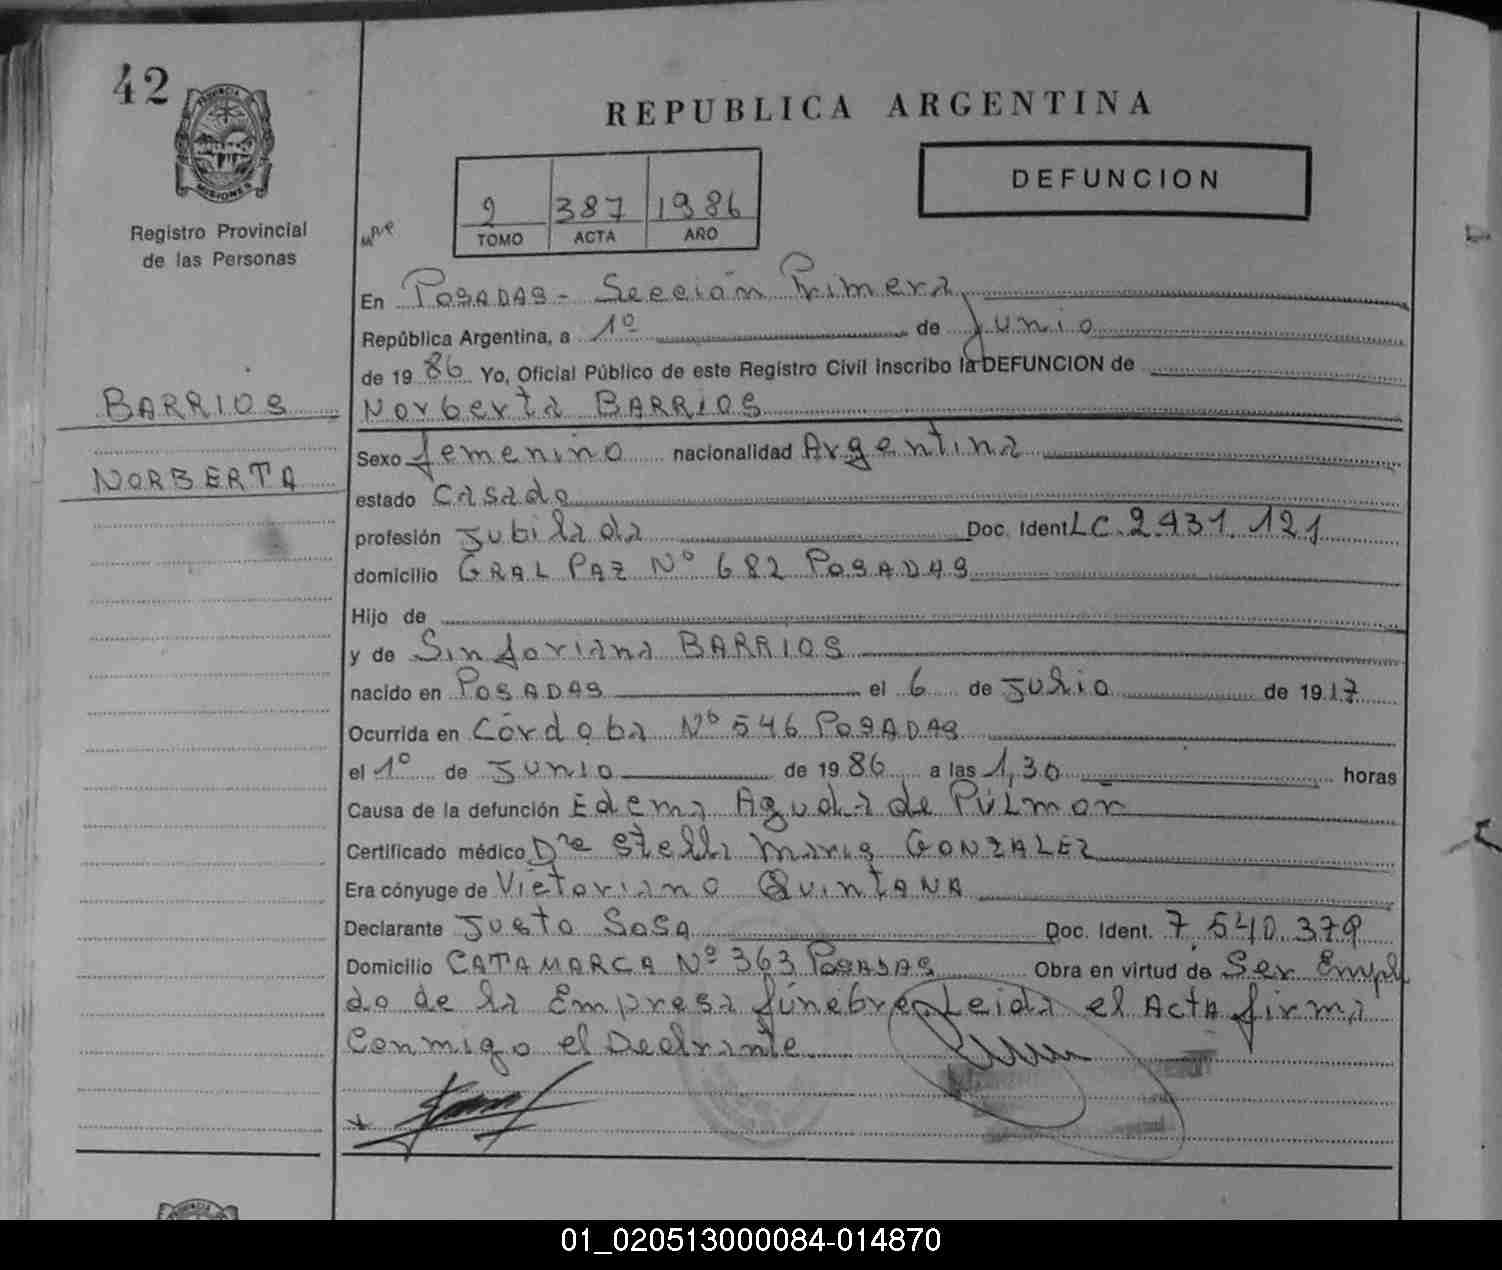 42
PROVINCIA
MISIONES
Registro Provincial
de las Personas
BARRIOS
NORBERTA
REPUBLICA ARGENTINA
DEFUNCION
2 387 1986
TOMO ACTA AÑO
En POSADAS - Sección Primera
República Argentina, a 1º de Junio
de 1986 Yo, Oficial Público de este Registro Civil inscribo la DEFUNCION de
Norberta BARRIOS
Sexo femenino nacionalidad Argentina
estado casado
profesión Jubilada Doc. Ident LC. 2.931.121
domicilio GRAL PAZ Nº 682 POSADAS
Hijo de
y de Sinforiana BARRIOS
nacido en POSADAS el 6 de Julio de 1917
Ocurrida en Córdoba Nº 546 POSADAS
el 1º de Junio de 1986 a las 1,30 horas
Causa de la defunción Edema Aguda de Pulmon
Certificado médico Dra Stella Maris GONZALEZ
Era cónyuge de Victoriano QuintANA
Declarante Justo SOSA Doc. Ident. 7.540.379
Domicilio CATAMARCA Nº 363 POSADAS Obra en virtud de Ser Empl
do de la Empresa fúnebre Leida el ActA firma
Conmigo el Declrante
01_020513000084-014870